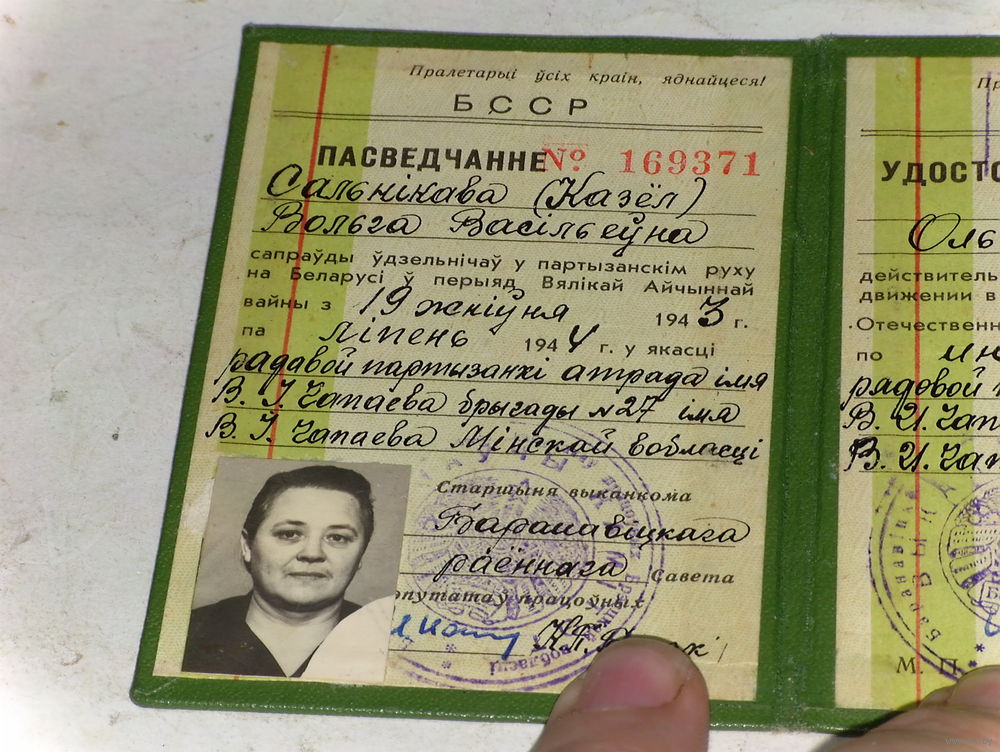 Пралетарыі ўсіх краін, яднайцеся!
БССР
ПАСВЕДЧАННЕ № 169371
Сальнікава (Казёл)
Вольга Васільеўна
сапраўды ўдзельнічаў у партызанскім руху
на Беларусі ў перыяд Вялікай Айчыннай
вайны з 19 жніўня 1943 г.
па ліпень 1944 г. у якасці
радавой партызанкі атрада імя
В. І. Чапаева брыгады №27 імя
В. І. Чапаева Мінскай вобласці
Старшыня выканкома
Баранавіцкага
раённага Савета
эпутатаў працоўных
УДОСТО
Оль
действитель
движении в
Отечественн
по ин
радовой
В. И. Чап
В. И. Чап
М. П.